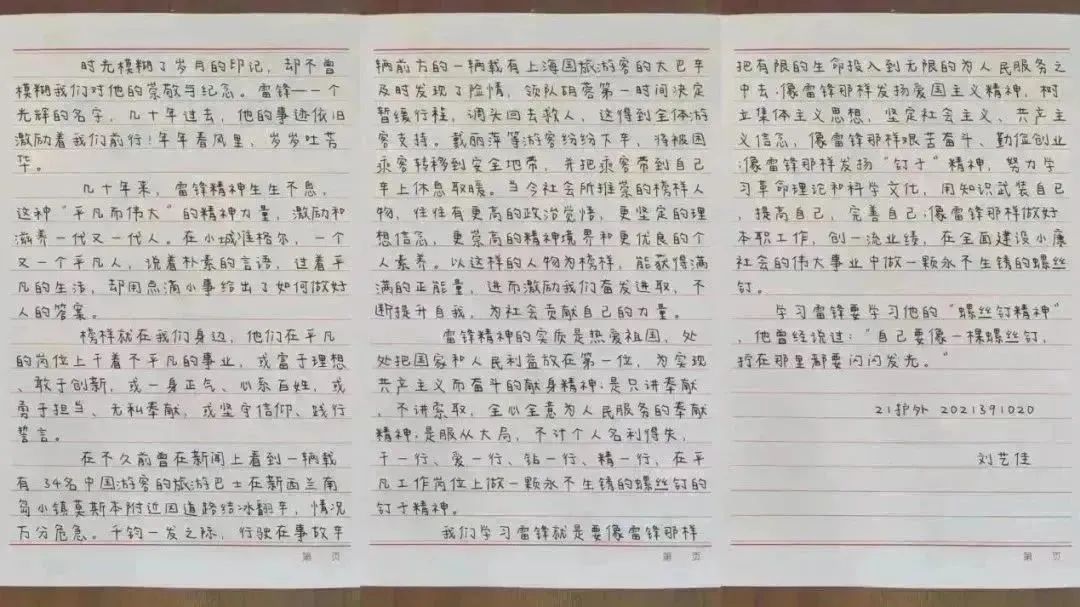 时光模糊了岁月的印记，却不曾
模糊我们对他的崇敬与纪念。雷锋一一个
光辉的名字，几十年过去，他的事迹依旧
激励着我们前行！年年春风里，岁岁吐芳
华。
几十年来，雷锋精神生生不息，
这种“平凡而伟大”的精神力量，激励和
滋养一代又一代人。在小城准格尔，一个
又一个平凡人，说着朴素的言语，过着平
凡的生活，却用点滴小事给出了如何做好
人的答案。
榜样就在我们身边，他们在平凡
的岗位上干着不平凡的事业，或富于理想
、敢于创新，或一身正气、心系百姓，或
勇于担当、无私奉献，或坚守信仰、践行
誓言。
在不久前曾在新闻上看到一辆载
有34名中国游客的旅游巴士在新西兰南
岛小镇莫斯本附近因道路结冰翻车，情况
万分危急。千钧一发之际，行驶在事故车
第 页
辆前方的一辆载有上海国旅游客的大巴车
及时发现了险情，领队胡蓉第一时间决定
暂缓行程，调头回去救人，这得到全体游
客支持。戴丽萍等游客纷纷下车，将被困
乘客转移到安全地带，并把乘客带到自己
车上休息取暖。当今社会所推崇的榜样人
物，往往有更高的政治觉悟，更坚定的理
想信念，更崇高的精神境界和更优良的个
人素养。以这样的人物为榜样，能获得满
满的正能量，进而激励我们奋发进取，不
断提升自我，为社会贡献自己的力量。
雷锋精神的实质是热爱祖国，处
处把国家和人民利益放在第一位，为实现
共产主义而奋斗的献身精神；是只讲奉献
，不讲索取，全心全意为人民服务的奉献
精神；是服从大局，不计个人名利得失，
干一行、爱一行、钻一行、精一行，在平
凡工作岗位上做一颗永不生锈的螺丝钉的
钉子精神。
我们学习雷锋就是要像雷锋那样
第 页
把有限的生命投入到无限的为人民服务之
中去；像雷锋那样发扬爱国主义精神，树
立集体主义思想，坚定社会主义、共产主
义信念，像雷锋那样艰苦奋斗、勤俭创业
；像雷锋那样发扬“钉子”精神，努力学
习革命理论和科学文化，用知识武装自己
，提高自己，完善自己；像雷锋那样做好
本职工作，创一流业绩，在全面建设小康
社会的伟大事业中做一颗永不生锈的螺丝
钉。
学习雷锋要学习他的“螺丝钉精神”
，他曾经说过：“自己要像一棵螺丝钉，
拧在那里都要闪闪发光。”
21护外 2021391020
刘艺佳
第 页